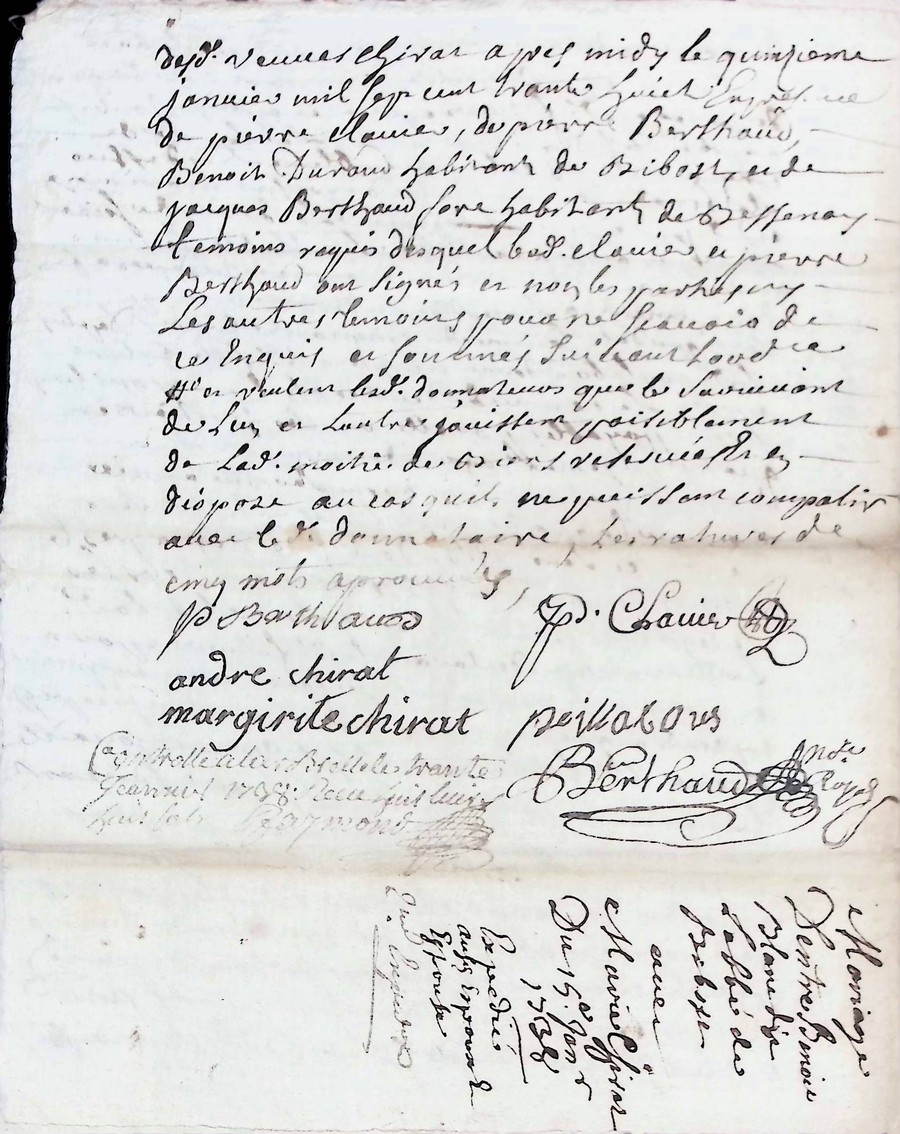 desd. veuves Chirat apres midy le quinzieme
janvier mil sept cent trante huict En presence
de pierre Clavier, de pierre Berthaud,
Benoit Durand habitant de Bibost, et de
Jacques Berthaud habitant de Bessenay
temoins requis desquel led. Clavier et pierre
Berthaud ont signés et non les parties ny
Les autres temoins pour ne scavoir de
ce Enquis et sommés suivant Lord.ce
et veulent lesd. donnateurs que le survivant
de Lun et Lautre jouissent paisiblement
de Lad. moitié de biens reservés Et en
dispose au cas quils ne puissent compatir
avec le d. donnataire, Les ratures de
cinq mots aprouvées,
p Berthaud
pd. Clavier
andre chirat
margirite chirat
Berthaud
Controllé a le trante
Janvier 1738. Receu
Raymond
Mariage
Dentre Benoit
Blanc dit
Labbé de
Bibost
avec
Marie Chirat
Du 15e Janr
1738
Expedié
aux Epoux